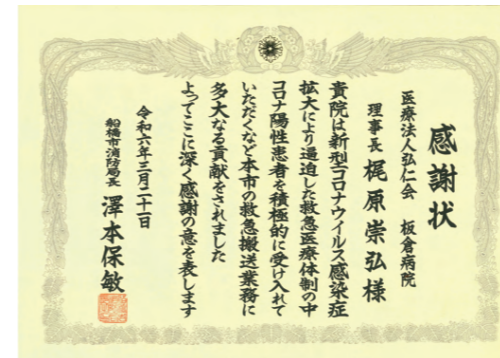 感謝状
医療法人弘仁会 板倉病院
理事長 梶原崇弘様
貴院は新型コロナウイルス感染症
拡大により逼迫した救急医療体制の中
コロナ陽性患者を積極的に受け入れて
いただくなど本市の救急搬送業務に
多大なる貢献をされました
よってここに深く感謝の意を表します
令和六年三月二十一日
船橋市消防局長 澤本保敏